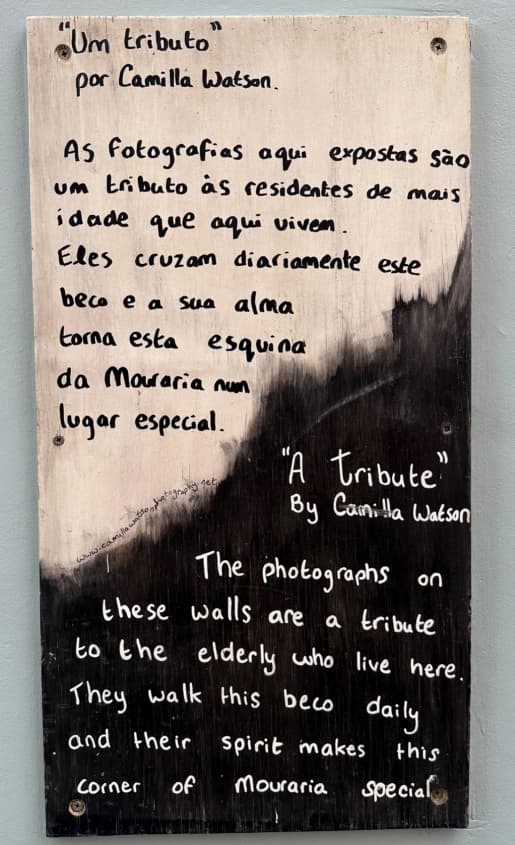 "Um tributo"
por Camilla Watson.
As fotografias aqui expostas são
um tributo às residentes de mais
idade que aqui vivem.
Eles cruzam diariamente este
beco e a sua alma
torna esta esquina
da Mouraria num
lugar especial.
www.camillawatsonphotography.net
"A tribute"
By Camilla Watson
The photographs on
these walls are a tribute
to the elderly who live here.
They walk this beco daily
and their spirit makes this
corner of Mouraria special